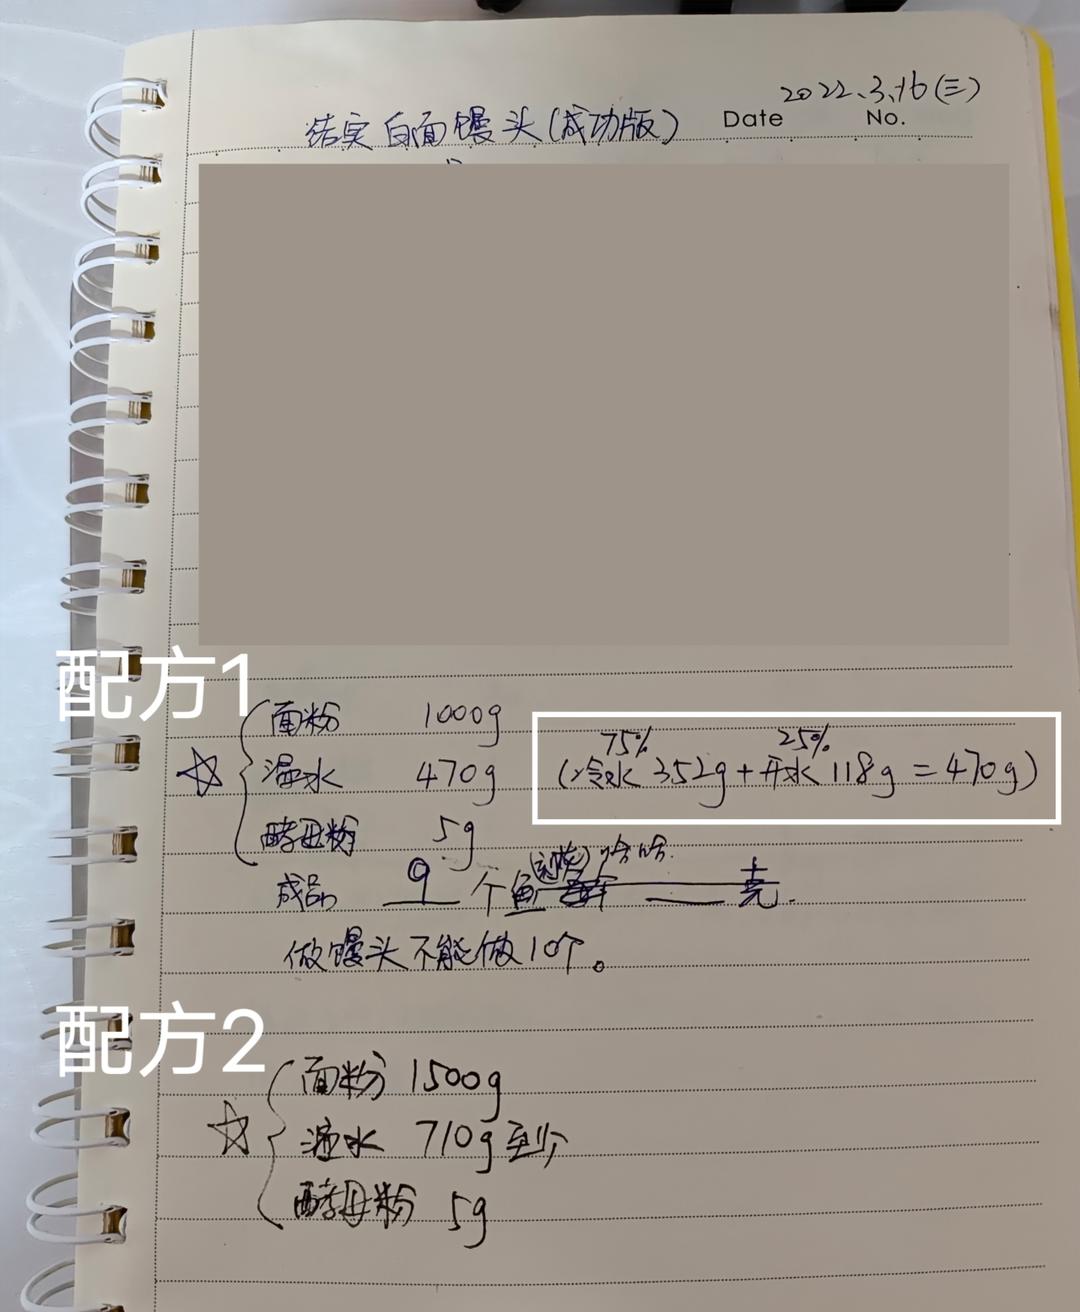 2022.3.16(三)
结实白面馒头(成功版) Date No.
配方1
面粉 1000g
75% 25%
温水 470g (冷水 352g+开水 118g=470g)
酵母粉 5g
成品 9 个 鱼 哈哈. 克.
做馒头不能做10个。
配方2
面粉 1500g
温水 710g至少
酵母粉 5g